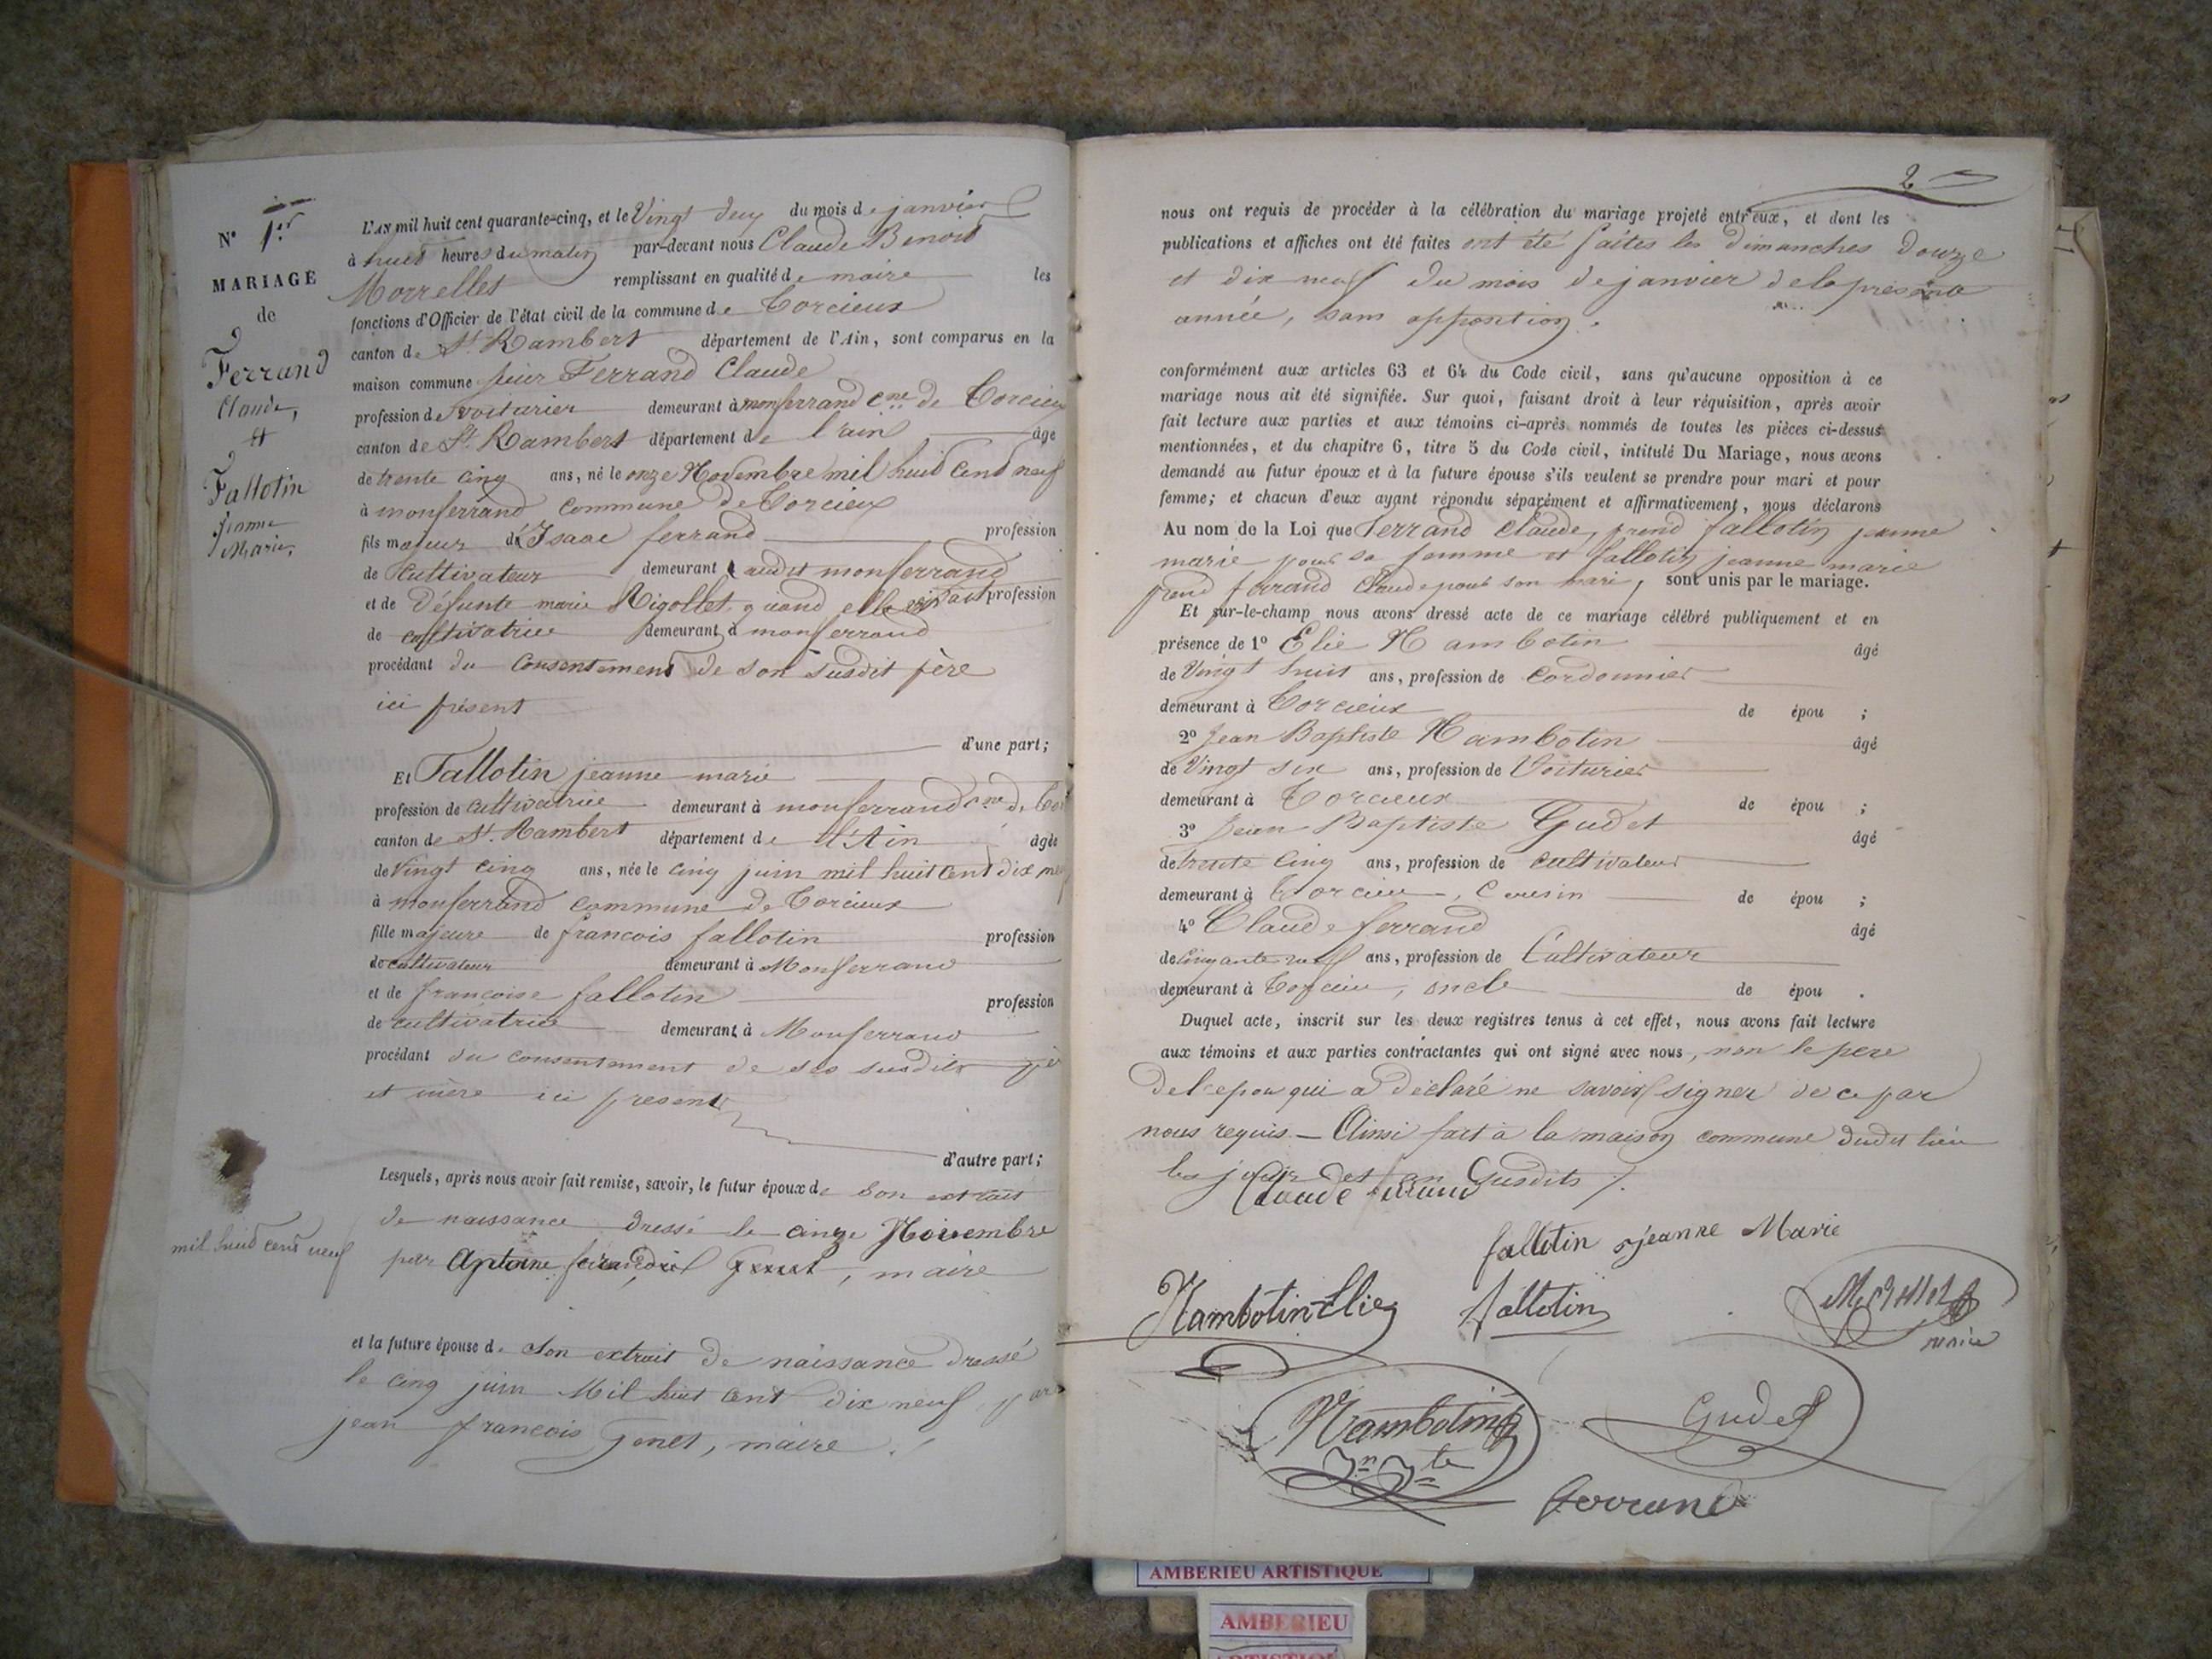 N° 1er
MARIAGE
de
Ferrand
Claude,
et
Fallotin
jeanne
Marie,
L'AN mil huit cent quarante-cinq, et le Vingt deux du mois de janvier
à huit heures du matin par-devant nous Claude Benoit
Morrellet remplissant en qualité de maire les
fonctions d'Officier de l'état civil de la commune de Torcieux
canton de St. Rambert département de l'Ain, sont comparus en la
maison commune sieur Ferrand Claude
profession de voiturier demeurant à monferrand cne de Torcieu
canton de St. Rambert département de l'ain âgé
de trente cinq ans, né le onze Novembre mil huit cent neuf
à monferrand commune de Torcieux
fils majeur de Isaac ferrand profession
de Cultivateur demeurant audit monferrand
et de Défunte marie Rigollet quand elle était profession
de cultivatrice demeurant à monferrand
procédant du consentement de son susdit père
ici présent
d'une part;
Et Fallotin jeanne marie
profession de cultivatrice demeurant à monferrand cne de Tor
canton de St. Rambert département de l'Ain âgée
de Vingt cinq ans, née le cinq juin mil huit cent dix neuf
à monferrand commune de Torcieux
fille majeure de francois fallotin profession
de cultivateur demeurant à Monferrand
et de francoise fallotin profession
de cultivatrice demeurant à Monferrand
procédant du consentement de ses susdits pè
et mère ici présents
d'autre part;
Lesquels, après nous avoir fait remise, savoir, le futur époux de son extrait
de naissance dressé le onze Novembre
mil huit cent neuf
par Antoine maire
et la future épouse de son extrait de naissance dressé
le cinq juin Mil huit cent dix neuf par
jean francois Genet, maire.
2
nous ont requis de procéder à la célébration du mariage projeté entr'eux, et dont les
publications et affiches ont été faites ont été faites les dimanches douze
et dix neuf du mois de janvier de la présente
année, sans opposition.
conformément aux articles 63 et 64 du Code civil, sans qu'aucune opposition à ce
mariage nous ait été signifiée. Sur quoi, faisant droit à leur réquisition, après avoir
fait lecture aux parties et aux témoins ci-après nommés de toutes les pièces ci-dessus
mentionnées, et du chapitre 6, titre 5 du Code civil, intitulé Du Mariage, nous avons
demandé au futur époux et à la future épouse s'ils veulent se prendre pour mari et pour
femme; et chacun d'eux ayant répondu séparément et affirmativement, nous déclarons
Au nom de la Loi que Ferrand Claude, prend fallotin jeanne
marie pour sa femme et fallotin jeanne marie
prend ferrand Claude pour son mari, sont unis par le mariage.
Et sur-le-champ nous avons dressé acte de ce mariage célébré publiquement et en
présence de 1° Elie Nambotin âgé
de Vingt huit ans, profession de Cordonnier
demeurant à Torcieux de épou ;
2° Jean Baptiste Nambotin âgé
de Vingt six ans, profession de Voiturier
demeurant à Torcieux de épou ;
3° Jean Baptiste Gudet âgé
de trente cinq ans, profession de cultivateur
demeurant à Torcieu, Cousin de épou ;
4° Claude ferrand âgé
de cinquante neuf ans, profession de Cultivateur
demeurant à Torcieu, oncle de épou .
Duquel acte, inscrit sur les deux registres tenus à cet effet, nous avons fait lecture
aux témoins et aux parties contractantes qui ont signé avec nous, non le pere
de l'epou qui a déclaré ne savoir signer de ce par
nous requis. — Ainsi fait à la maison commune dudit lieu
les jour et an susdits /.
Claude ferrand
fallotin jeanne Marie
Nambotin Elie
fallotin
maire
Nambotin
Jn Bte
Gudet
ferrand
AMBERIEU ARTISTIQUE
AMBERIEU
ARTISTIQUE